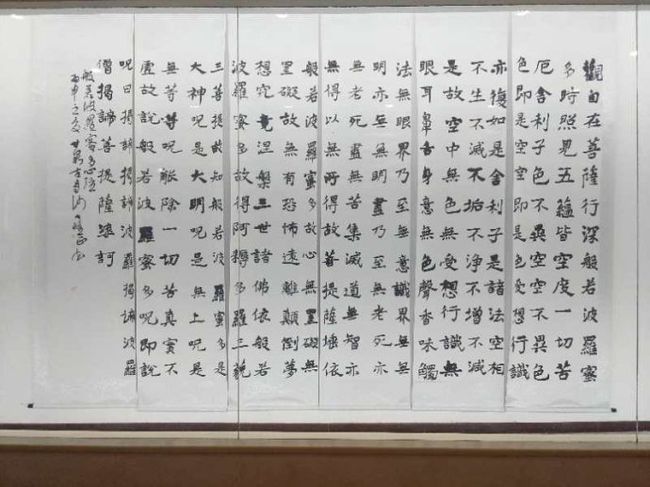 觀自在菩薩行深般若波羅蜜
多時照見五蘊皆空度一切苦
厄舍利子色不異空空不異色
色即是空空即是色受想行識
亦復如是舍利子是諸法空相
不生不滅不垢不淨不增不減
是故空中無色無受想行識無
眼耳鼻舌身意無色聲香味觸
法無眼界乃至無意識界無無
明亦無無明盡乃至無老死亦
無老死盡無苦集滅道無智亦
無得以無所得故菩提薩埵依
般若波羅蜜多故心無罣礙無
罣礙故無有恐怖遠離顛倒夢
想究竟涅槃三世諸佛依般若
波羅蜜多故得阿耨多羅三藐
三菩提故知般若波羅蜜多是
大神呪是大明呪是無上呪是
無等等呪能除一切苦真實不
虛故說般若波羅蜜多呪即說
呪曰揭諦揭諦波羅揭諦波羅
僧揭諦菩提薩婆訶
般若波羅蜜多心經
丙申之